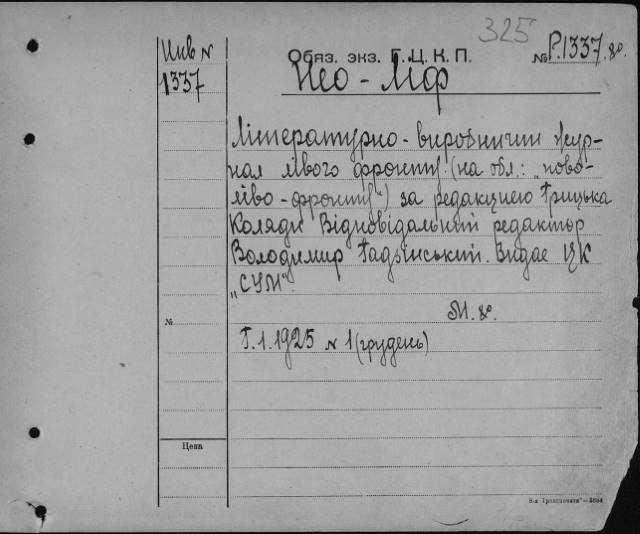 325
Инв №
1337
Обяз. экз. Г.Ц.К.П.
№ Р.1337.
Нео-Ліф
Літературно-виробничий жур-
нал лівого фронту. (на обл.: "ново-
ліво-фронту") за редакциею Грицька
Коляди Відповідальний редактор
Володимир Гадзінський. Видає ЦК
„СУМ".
М. 8°.
№
Г.1.1925 № 1 (грудень)
Цена